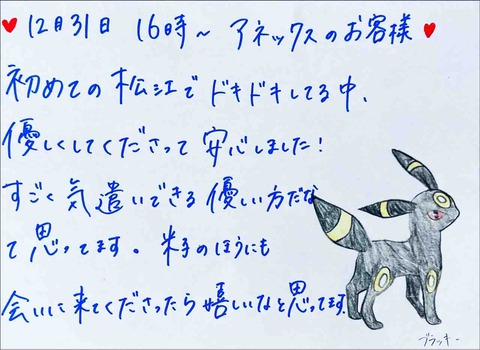 ♥12月31日 16時〜 アネックスのお客様♥
初めての松江でドキドキしてる中、
優しくしてくださって安心しました!
すごく気遣いできる優しい方だな
て思ってます。米子のほうにも
会いに来てくださったら嬉しいなと思ってます
ブラッキー